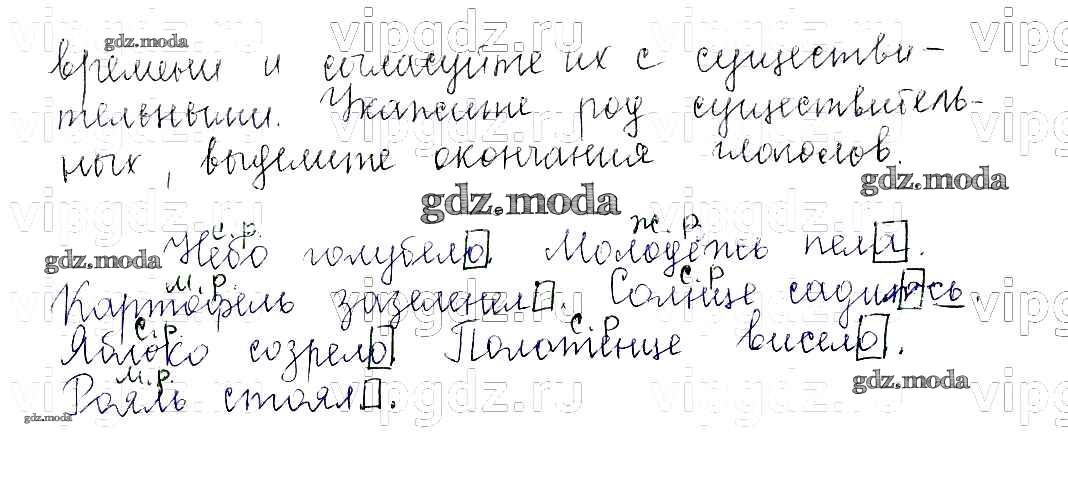 времени и согласуйте их с существи-
тельными. Укажите род существитель-
ных, выделите окончания глаголов.
с.р. ж.р.
Небо голубело. Молодёжь пела.
м.р. с.р.
Картофель зазеленел. Солнце садилось.
с.р. с.р.
Яблоко созрело. Полотенце висело.
м.р.
Рояль стоял.
gdz.moda
vipgdz.ru